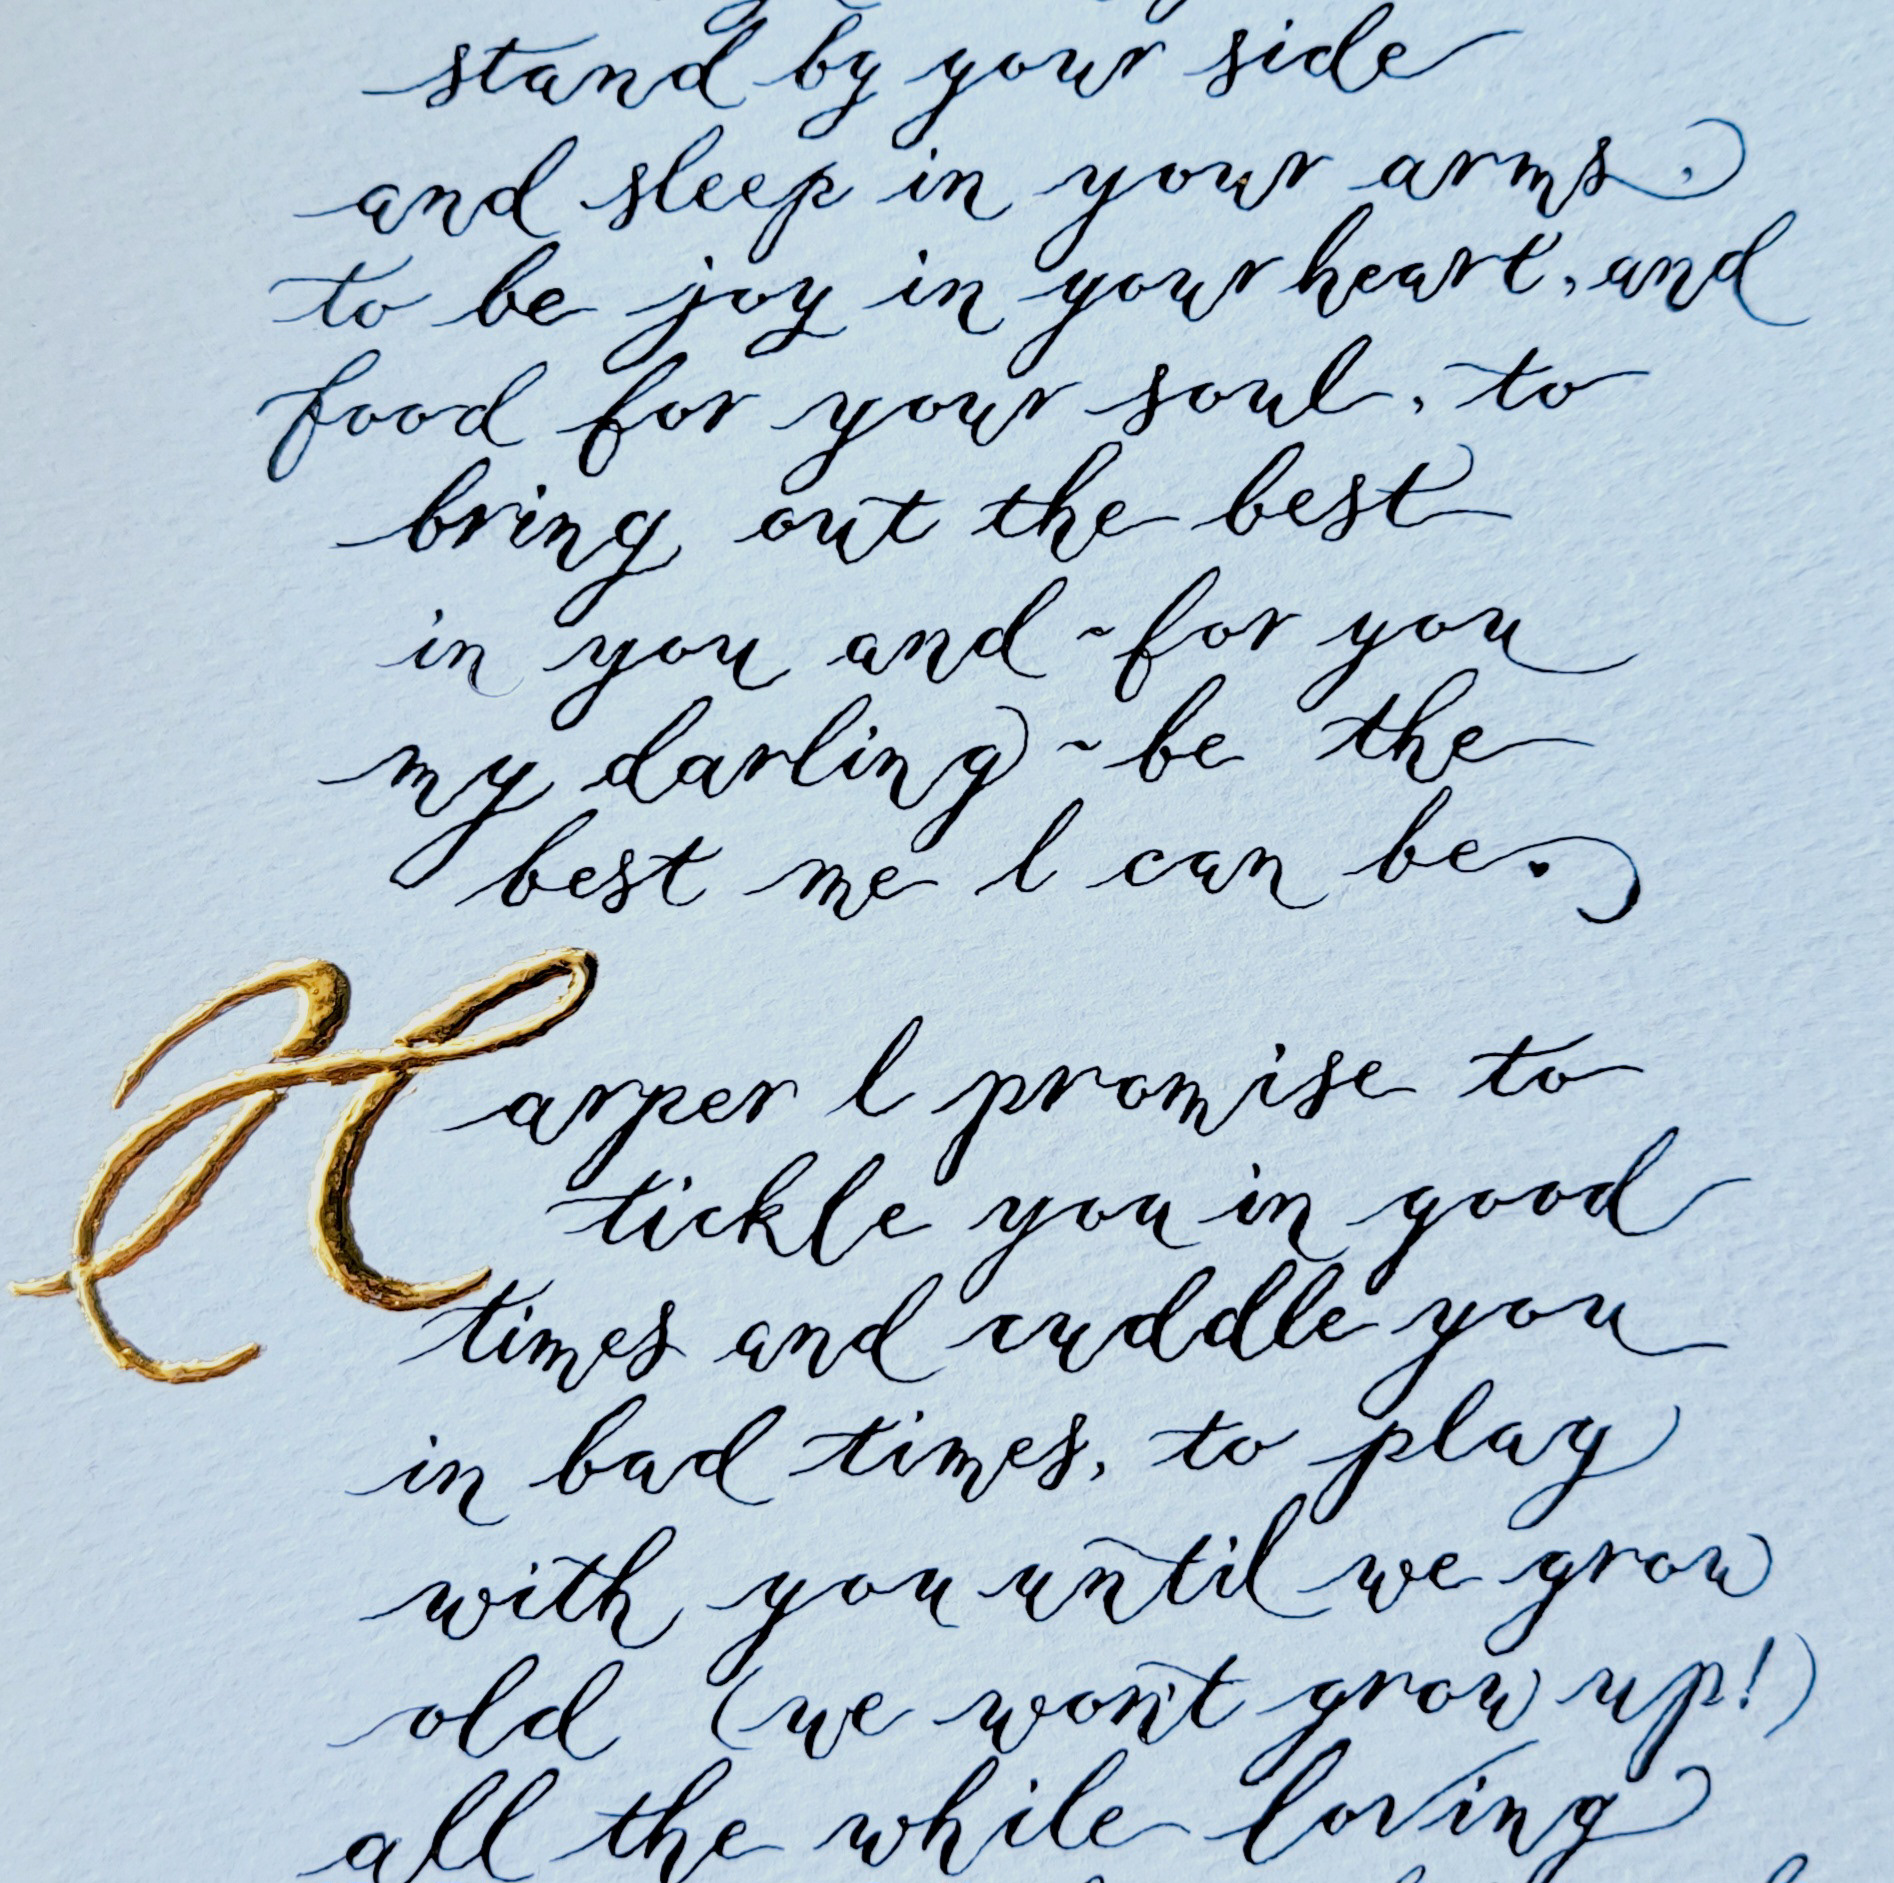 stand by your side
and sleep in your arms,
to be joy in your heart, and
food for your soul, to
bring out the best
in you and ~ for you
my darling ~ be the
best me I can be.
Harper I promise to
tickle you in good
times and cuddle you
in bad times, to play
with you until we grow
old (we won't grow up!)
all the while loving